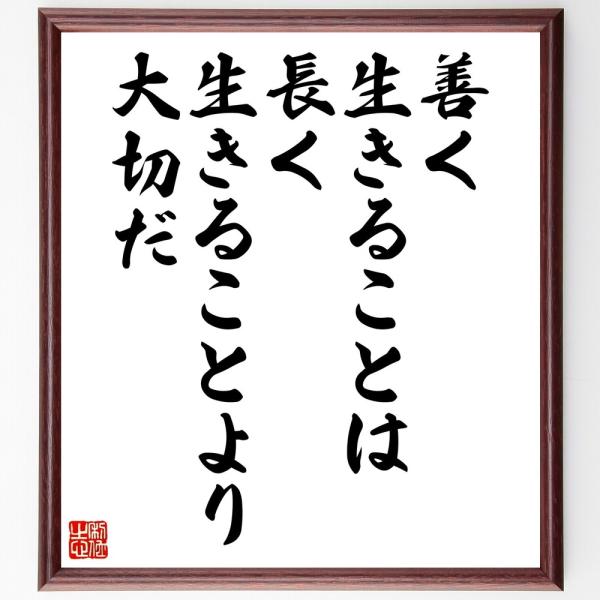 善く
生きることは
長く
生きることより
大切だ